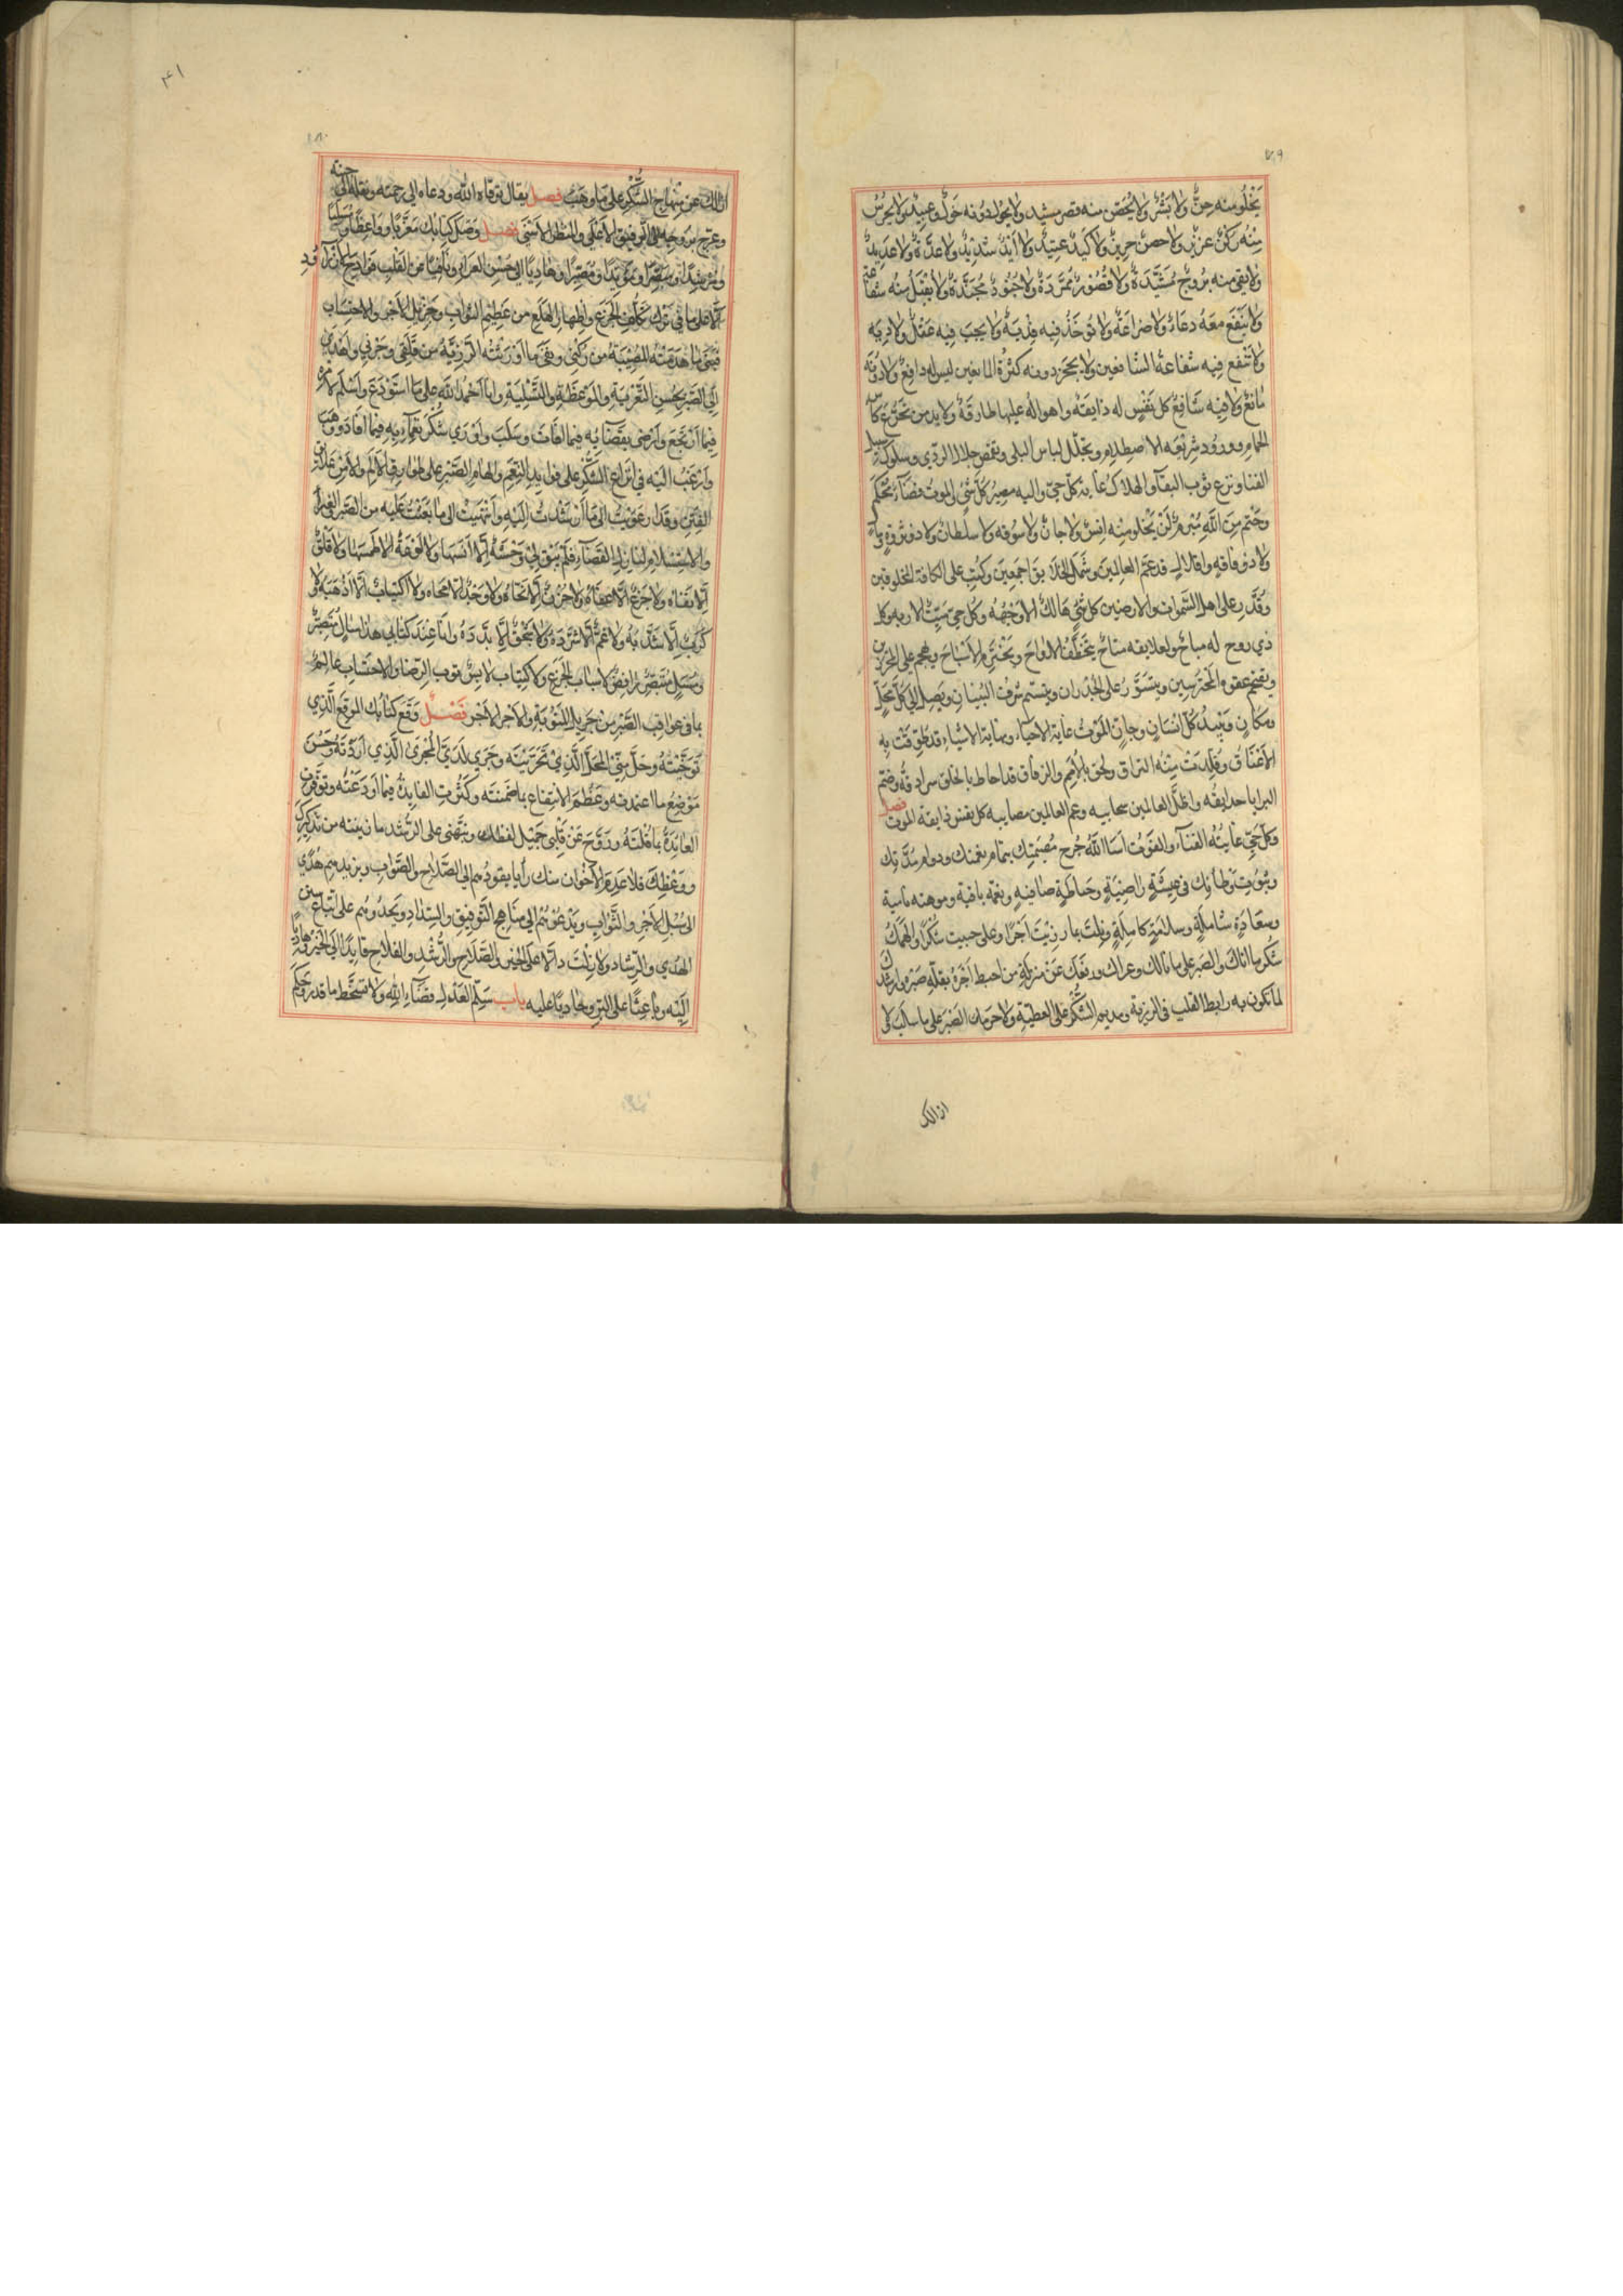 ١٧٩
يَخْلُو منه جنٌّ ولا بَشَرٌ ولا يُحَصّن منه قصر مشيد ولا يحول دونه خَوَلٌ وعبيدٌ ولا يحرُسُ
مِنْه ركنٌ عزيز ولا حصنٌ حريزٌ ولا كيدٌ عتيدٌ ولا أَيْدٌ شديدٌ ولا عُدَّةٌ ولا عديدٌ
ولا يقي منه بروجٌ مُشَيَّدةٌ ولا قُصُورٌ مُمَرَّدَةٌ ولا جُنُودٌ مُجَنَّدَةٌ ولا يُقْبَلُ منه شفاعة
ولا يَنْفَع معَهُ دعاءٌ ولا ضراعَةٌ ولا تُوخَذُ فيه فِدْيَةٌ ولا يجب فيه عَقْلٌ ولا دِيَه
ولا تَنْفع فيه شفاعة الشافعين ولا يحجز دونه كثرة المانعين ليس له دافعٌ ولا دُونَه
مانعٌ ولا فيه شافعٌ كل نَفْسٍ له ذايقة واهواله عليها طارقةٌ ولا بد من تجَرُّع كأس
الحمام وورود شريعة الاصطلام وتجلّل لباس البلى وتقمّص جلال الرّدي وسلوك سبيل
الفنا ونزع ثوب البقآ والهلاك غاية كلّ حيّ واليه مصِيرُ كلّ شَيْءٍ الموتُ قضآءٌ مُحْكم
وحَتْم مِنَ اللهِ مُبْرم لَنْ يَخْلُو مِنْه اِنسٌ ولا جانٌّ ولا سُوقه ولا سلطانٌ ولا ذو ثروةٍ
ولا ذو فاقةٍ واقلال قد عَمّ العالمينَ وشَمَلَ الخلايق اجمَعِينَ وكُتِبَ على الكافة المخلوقين
وقُدّر على اهل السّموات والارضين كل شَيٍ هالكٌ الا وَجْهُه وكُلّ حيّ مَيّتٌ الا ربه وكل
ذي روح له مباحٌ يَتَخَطَّفُ الارواحَ ويَخْتَرِم الاشباحَ ويهجم على
ويقتحم عقوة المحترسين ويتسَوَّرُ على الجُدران ويتسنّم شُرف البُنيان ويَصِل الى كلّ محَلٍّ
ومكانٍ ويُبيدُ كلّ انسانٍ وجانٍ الموت غاية الاحياء ونهاية الاشياء قد طُوّقَتْ به
الاعْناقُ وقُلّدتْ مِنْهُ التراق ولحق بالأُمَم والرفاق قد احاط بالخلق سرادقُه وضمّ
البرايا حدايقُه واظلّ العالمين سحابيه وعم العالمين مصايبه كل نفس ذايقة الموت فصل
وكلّ حَيٍّ غايتُه الفَنآء والفَوْت اسَا اللهُ جُرحَ مُصيبَتِك بتمام نعمتك ودوام مُدّتك
وثُبُوت وَطأتِك في عِيشَةٍ رَاضِيَةٍ وحَاطةٍ صافيةٍ ونعمةٍ باقيةٍ وموهبة نامية
وسعادَةٍ شاملةٍ وسلامَةٍ كاملةٍ ونلتَ بما رُزِئْتَ اَجْرًا وعلى ما حبيت شكرًا وألهمك
شُكر ما اتاك والصّبر على ما نالك وعراك ورفعَك عَنْ منزلة من احبط اَجْرهُ بقلّة صَبْره وارشدك
لما تكون به رابط القلب في الرزية ومديم الشُّكر على العطيّة ولا حرمك الصّبر على ما سلب ولا
ازالك
٤١
١٨٠
ازالك عن مِنْهاج الشُّكر على مَا وهَبَ فصل يقال توفاه اللّه ودعاه الى رحمته ونقله الى جنته
وعرج بروحه الى الرفيق الأعلى والمنظر الأسنى فصل وَصَل كتابُك مُعَزّيًا ووَاعِظًا ومسليًا
ومُرشِدًا ومبصّرًا ومؤيّدًا ومُصبّرًا وهاديًا الى حُسن العزآ ونافيًا عن القلب
على ما في ترك تكلّف الجزع واظهار الهلع من عَظِيم الثواب وجَزيل الأجر والاحتساب
فبنى ما هَدمَتْهُ المُصيبَةُ من رُكني ونفى ما أوْرَثَتْه الرّزِيَّة من قَلَقي وحُزني واهداني
الى الصّبر بحُسنِ التَّعْزيَةِ والمَوعظَةِ والتَّسْلِيةِ وانا أحْمدُ اللهَ على ما اسْتَوْدَعَ واسْلَم لأمره
فيما انْتجَعَ وارضى بقَضائِه فيما أفاتَ وسَلَبَ واوري شُكْر نَعْمَآئِه فيما افادَ ووهَبَ
وارْغبُ الَيْه في ايزاع الشُّكر على فوايد النِّعَم والهام الصَّبْر على طوارق الألَم والأمن
الفِتَن وقد ارعَوَيْتُ الى مَا أَرْشَدْتَ الَيْه وانْتَهَيْتُ الى مَا بَعَثْتَ عليه من الصّبر والعزآء
والاستسلام لنازل القضآء فلَمْ يَبْقَ لي وَحْشةٌ اِلّا آنسَها ولا لَوْعَةٌ الا طمَسَها ولا قَلَقٌ
اِلّا نفاه ولا جَزَعٌ الّا عفّاهُ ولا حُزْنٌ اِلّا نَحّاهُ ولا وَجْدٌ الا مَحاه ولا اكتيابٌ الّا أذْهَبَهُ ولا
كَرْبٌ اِلّا شَذَّبَهُ ولا غَمٌّ الّا شَرَّدَهُ ولا شَجْوٌ اِلّا بَدَّدَهُ وانا عِنْدَ كتابي هذا سالٍ مُتَصبّرٌ
ومُسَلٍ مُتَبَصّرٌ رافِضٌ لأسْباب الجَزَع والاكتياب لابِسٌ ثوب الرّضا والاحتساب عالمٌ
بما في عواقب الصّبْر من جَزيل المَثُوبَة والأجر الأجر فَصْلٌ وَقَعَ كتابُك الموقِعَ الَّذي
تَوَخَّيْتَهُ وحَلَّ مِنّي المحَلّ الَّذِيْ تَحَرَّيْتَه وجَرَي لدَيَّ المَجرَىٰ الَّذِي اَرَدْتَهُ وحَسُنَ
مَوْضِعُ ما اعتمدته وعَظُمَ الانتِفاع بما ضمّنته وكَثُرتِ الفايدةُ فيما اَوْدَعْتَه وتوفّرت
العائدةُ بما قُلْتَهُ ورَوَّحَ عَنْ قَلْبي جَميل لفظك ونبّهني على الرُّشد ما بينته من تذكيرك
ووَعْظِك فلا عَدِمَ الأخْوان منك رأيا يقودُهم الى الصّلاح والصّواب ويزيدهم هُدًي
الى سُبُل الأجر والثَّواب ويَدْعُوهُمْ الى مناهج التّوفيق والسِّدَاد ويَحدُوهُم على اتباع سنن
الهُدي والرّشاد ولا زِلْتَ دالّا على الخير والصَّلاح والرُّشْدِ والفلاح قايِدًا الى الخَيْر هاديًا
اليه وباعِثًا على البِرِّ وحاديًا عليه باب سَلِّم العَبْد لقضآء الله ولا تتسخّط ما قدر وحكم